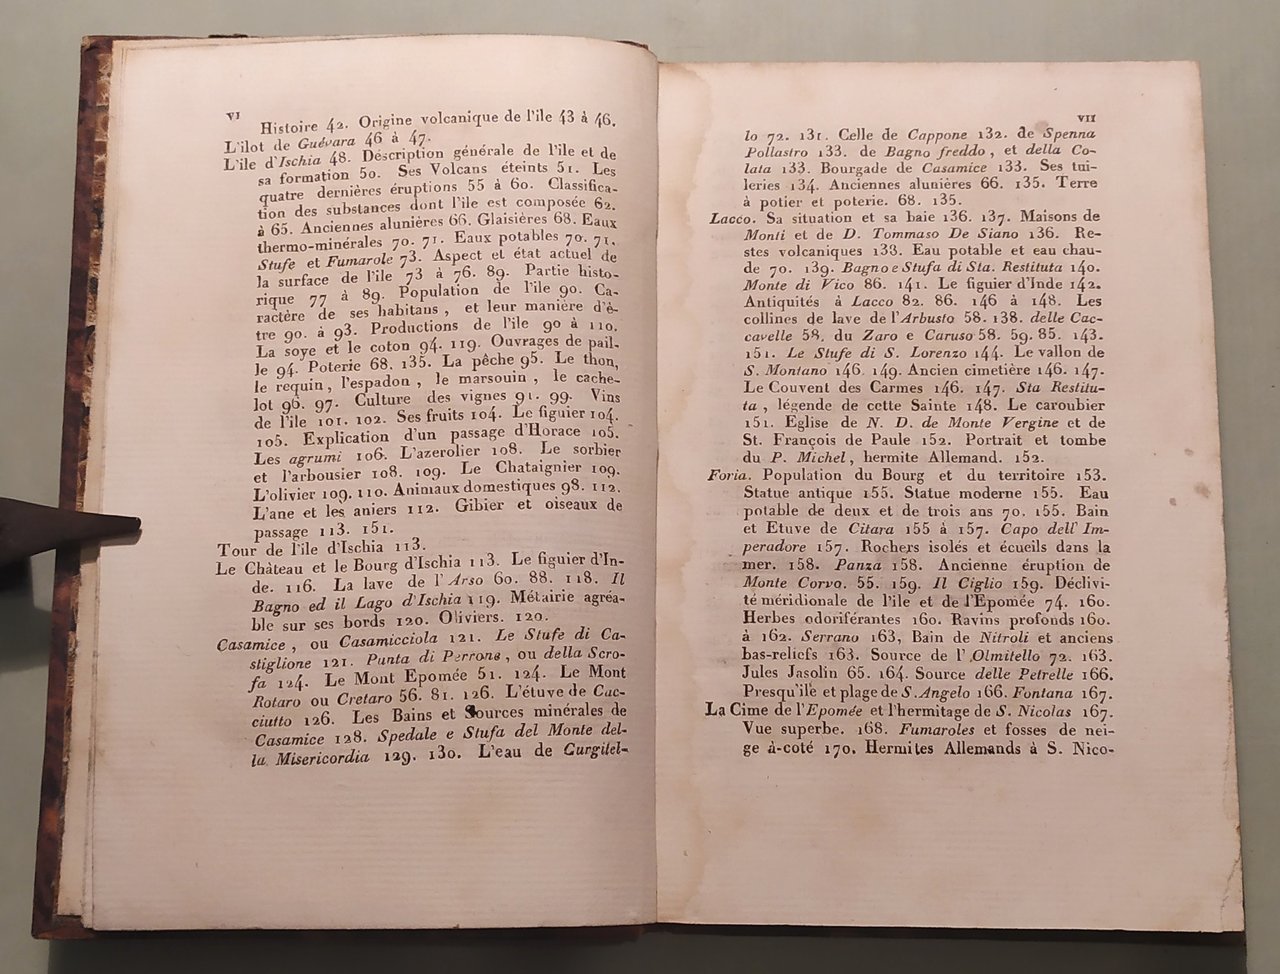 VI
Histoire 42. Origine volcanique de l'ile 43 à 46.
L'ilot de Guévara 46 à 47.
L'ile d'Ischia 48. Déscription générale de l'ile et de
sa formation 50. Ses Volcans éteints 51. Les
quatre dernières éruptions 55 à 60. Classifica-
tion des substances dont l'ile est composée 62.
à 65. Anciennes alunières 66. Glaisières 68. Eaux
thermo-minérales 70. 71. Eaux potables 70. 71.
Stufe et Fumarole 73. Aspect et état actuel de
la surface de l'ile 73 à 76. 89. Partie histo-
rique 77 à 89. Population de l'ile 90. Ca-
ractère de ses habitans, et leur manière d'ê-
tre 90. à 93. Productions de l'ile 90 à 110.
La soye et le coton 94. 119. Ouvrages de pail-
le 94. Poterie 68. 135. La pêche 95. Le thon,
le requin, l'espadon, le marsouin, le cache-
lot 96. 97. Culture des vignes 91. 99. Vins
de l'ile 101. 102. Ses fruits 104. Le figuier 104.
105. Explication d'un passage d'Horace 105.
Les agrumi 106. L'azerolier 108. Le sorbier
et l'arbousier 108. 109. Le Chataignier 109.
L'olivier 109. 110. Animaux domestiques 98. 112.
L'ane et les aniers 112. Gibier et oiseaux de
passage 113. 151.
Tour de l'ile d'Ischia 113.
Le Château et le Bourg d'Ischia 113. Le figuier d'In-
de. 116. La lave de l'Arso 60. 88. 118. Il
Bagno ed il Lago d'Ischia 119. Métairie agréa-
ble sur ses bords 120. Oliviers. 120.
Casamice, ou Casamicciola 121. Le Stufe di Ca-
stiglione 121. Punta di Perrone, ou della Scro-
fa 124. Le Mont Epomée 51. 124. Le Mont
Rotaro ou Cretaro 56. 81. 126. L'étuve de Cac-
ciutto 126. Les Bains et Sources minérales de
Casamice 128. Spedale e Stufa del Monte del-
la Misericordia 129. 130. L'eau de Gurgitel-
VII
lo 72. 131. Celle de Cappone 132. de Spenna
Pollastro 133. de Bagno freddo, et della Co-
lata 133. Bourgade de Casamice 133. Ses tui-
leries 134. Anciennes alunières 66. 135. Terre
à potier et poterie. 68. 135.
Lacco. Sa situation et sa baie 136. 137. Maisons de
Monti et de D. Tommaso De Siano 136. Re-
stes volcaniques 138. Eau potable et eau chau-
de 70. 139. Bagno e Stufa di Sta. Restituta 140.
Monte di Vico 86. 141. Le figuier d'Inde 142.
Antiquités à Lacco 82. 86. 146 à 148. Les
collines de lave de l'Arbusto 58. 138. delle Cac-
cavelle 58, du Zaro e Caruso 58. 59. 85. 143.
151. Le Stufe di S. Lorenzo 144. Le vallon de
S. Montano 146. 149. Ancien cimetière 146. 147.
Le Couvent des Carmes 146. 147. Sta Restitu-
ta, légende de cette Sainte 148. Le caroubier
151. Eglise de N. D. de Monte Vergine et de
St. François de Paule 152. Portrait et tombe
du P. Michel, hermite Allemand. 152.
Foria. Population du Bourg et du territoire 153.
Statue antique 155. Statue moderne 155. Eau
potable de deux et de trois ans 70. 155. Bain
et Etuve de Citara 155 à 157. Capo dell' Im-
peradore 157. Rochers isolés et écueils dans la
mer. 158. Panza 158. Ancienne éruption de
Monte Corvo. 55. 159. Il Ciglio 159. Déclivi-
té méridionale de l'ile et de l'Epomée 74. 160.
Herbes odoriférantes 160. Ravins profonds 160.
à 162. Serrano 163, Bain de Nitroli et anciens
bas-reliefs 163. Source de l'Olmitello 72. 163.
Jules Jasolin 65. 164. Source delle Petrelle 166.
Presqu'ile et plage de S. Angelo 166. Fontana 167.
La Cime de l'Epomée et l'hermitage de S. Nicolas 167.
Vue superbe. 168. Fumaroles et fosses de nei-
ge à-coté 170. Hermites Allemands à S. Nico-